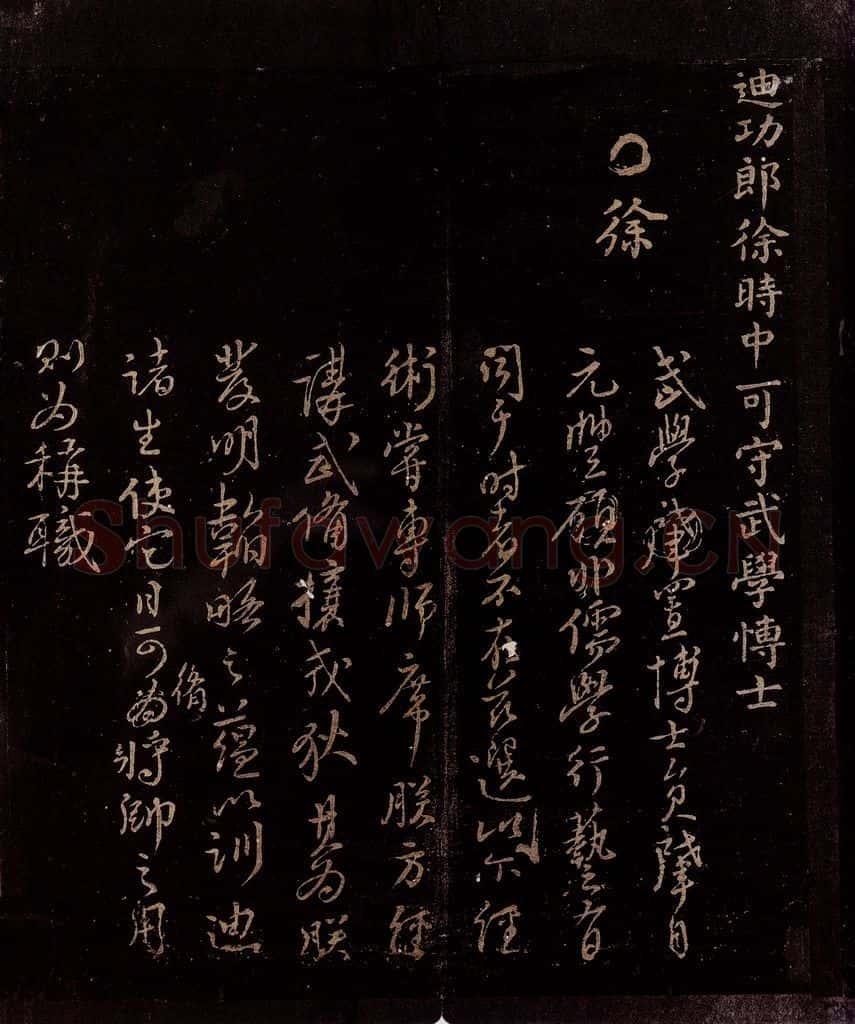 迪功郎徐時中可守武學博士
○徐
武學建置博士員肇自
元豐顧非儒學行藝有
聞于时者不在茲選以尔經
術嘗專师席朕方經
講武備攘戎狄其为朕
發明韜略之蘊以訓迪
諸生使它日可為將帥之用
備
则为稱職
Shufawang.cn